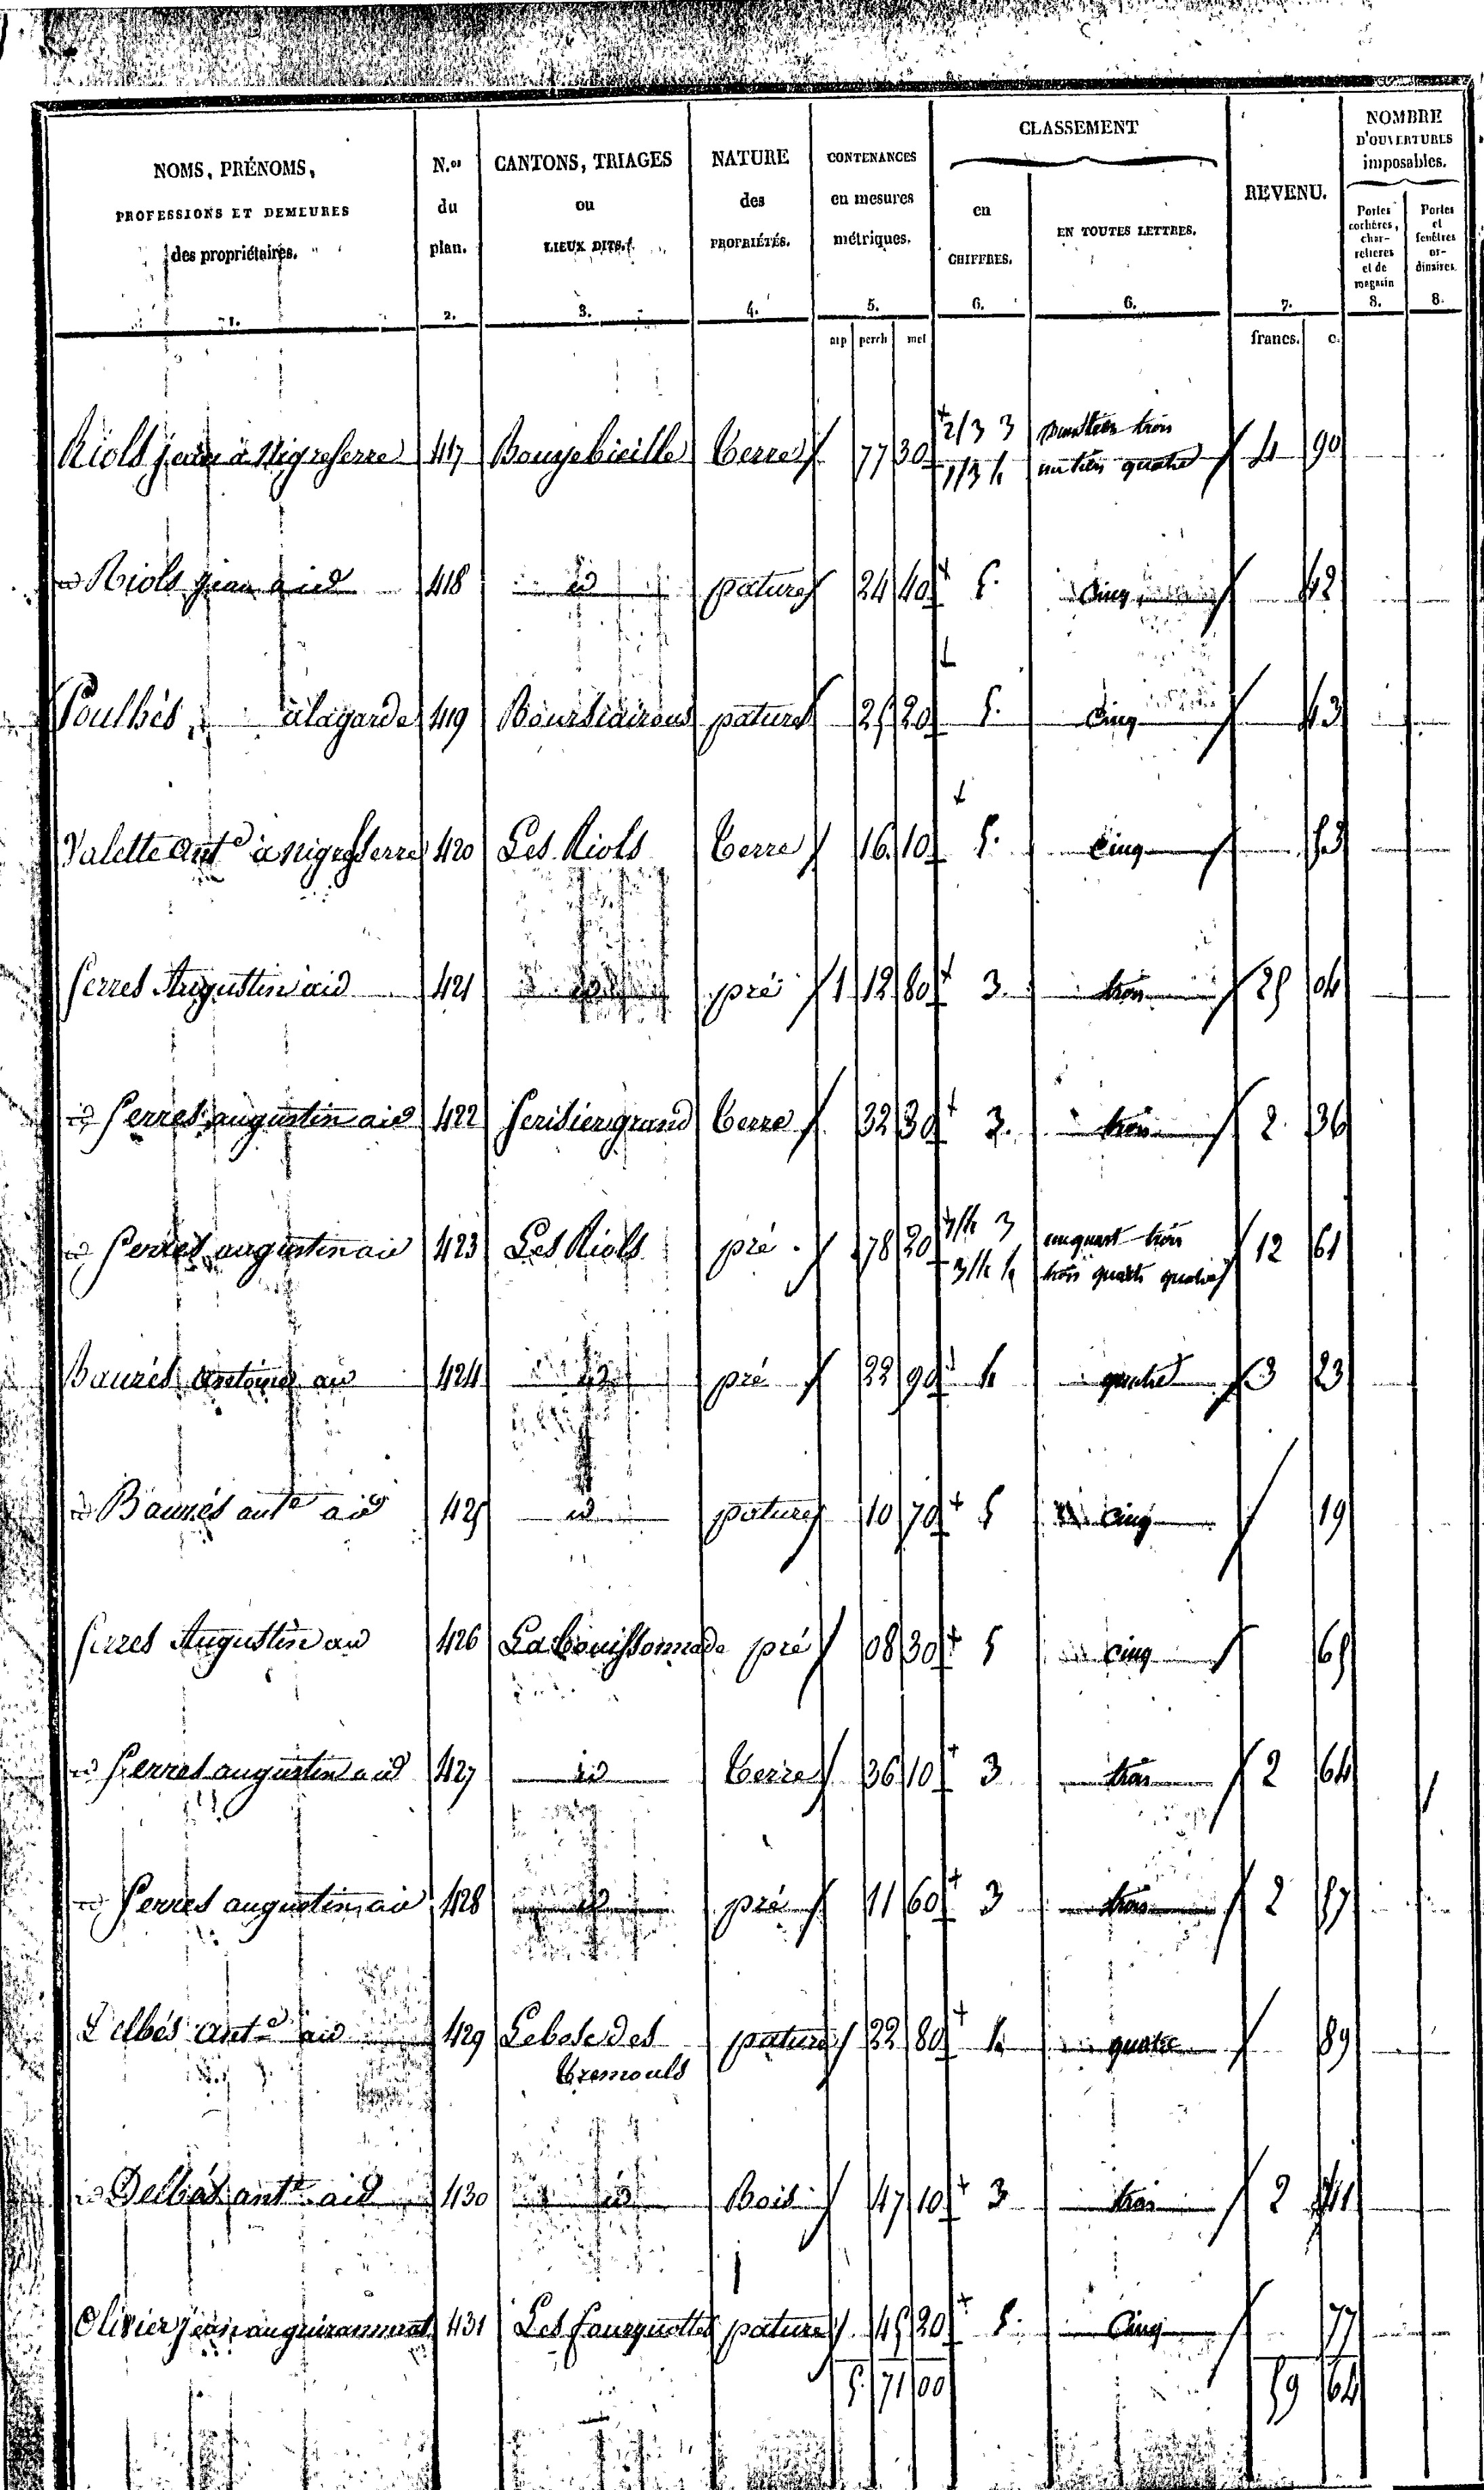 NOMS, PRÉNOMS, PROFESSIONS ET DEMEURES des propriétaires. 1.
N.os du plan. 2.
CANTONS, TRIAGES ou LIEUX DITS. 3.
NATURE des PROPRIÉTÉS. 4.
CONTENANCES en mesures métriques. 5.
CLASSEMENT
en CHIFFRES. 6.
EN TOUTES LETTRES. 6.
REVENU. 7.
NOMBRE D'OUVERTURES imposables.
Portes cochères, charretières et de magasin 8.
Portes et fenêtres ordinaires. 8.
arp perch met francs. c.
Riols jean à Nigreserre 417 Bouyebieille terre 77 30 2/3 3 deux tiers trois 4 90
1/3 4 un tiers quatre
id Riols jean a id 418 id pature 24 40 5. cinq 42
Poulhés à lagarde 419 pature 25 20 5. cinq 43
Valette Ant.e à nigreserre 420 Les Riols terre 16. 10 5. cinq 53
Serres Augustin a id 421 id pré 1 12 80 3. trois 25 04
id Serres augustin a id 422 Serisier grand terre 32 30 3. trois 2 36
id Serres augustin a id 423 Les Riols pré 78 20 1/4 3 un quart trois 12 61
3/4 4 trois quarts quatre
Baurés Antoine a id 424 id pré 22 90 4 quatre 3 23
id Baurés ant.e a id 425 id pature 10 70 5 cinq 19
Serres Augustin a id 426 La bouissonnade pré 08 30 5 cinq 65
id Serres augustin a id 427 id terre 36 10 3 trois 2 64
id Serres augustin a id 428 id pré 11 60 3 trois 2 57
Delbés Ant.e a id 429 Lebosc des pature 22 80 4 quatre 89
tremouls
id Delbés ant.e a id 430 id Bois 47 10 3 trois 2 41
Olivier jean 431 Les fourquettes pature 45 20 5. cinq 77
5. 71 00 59 64